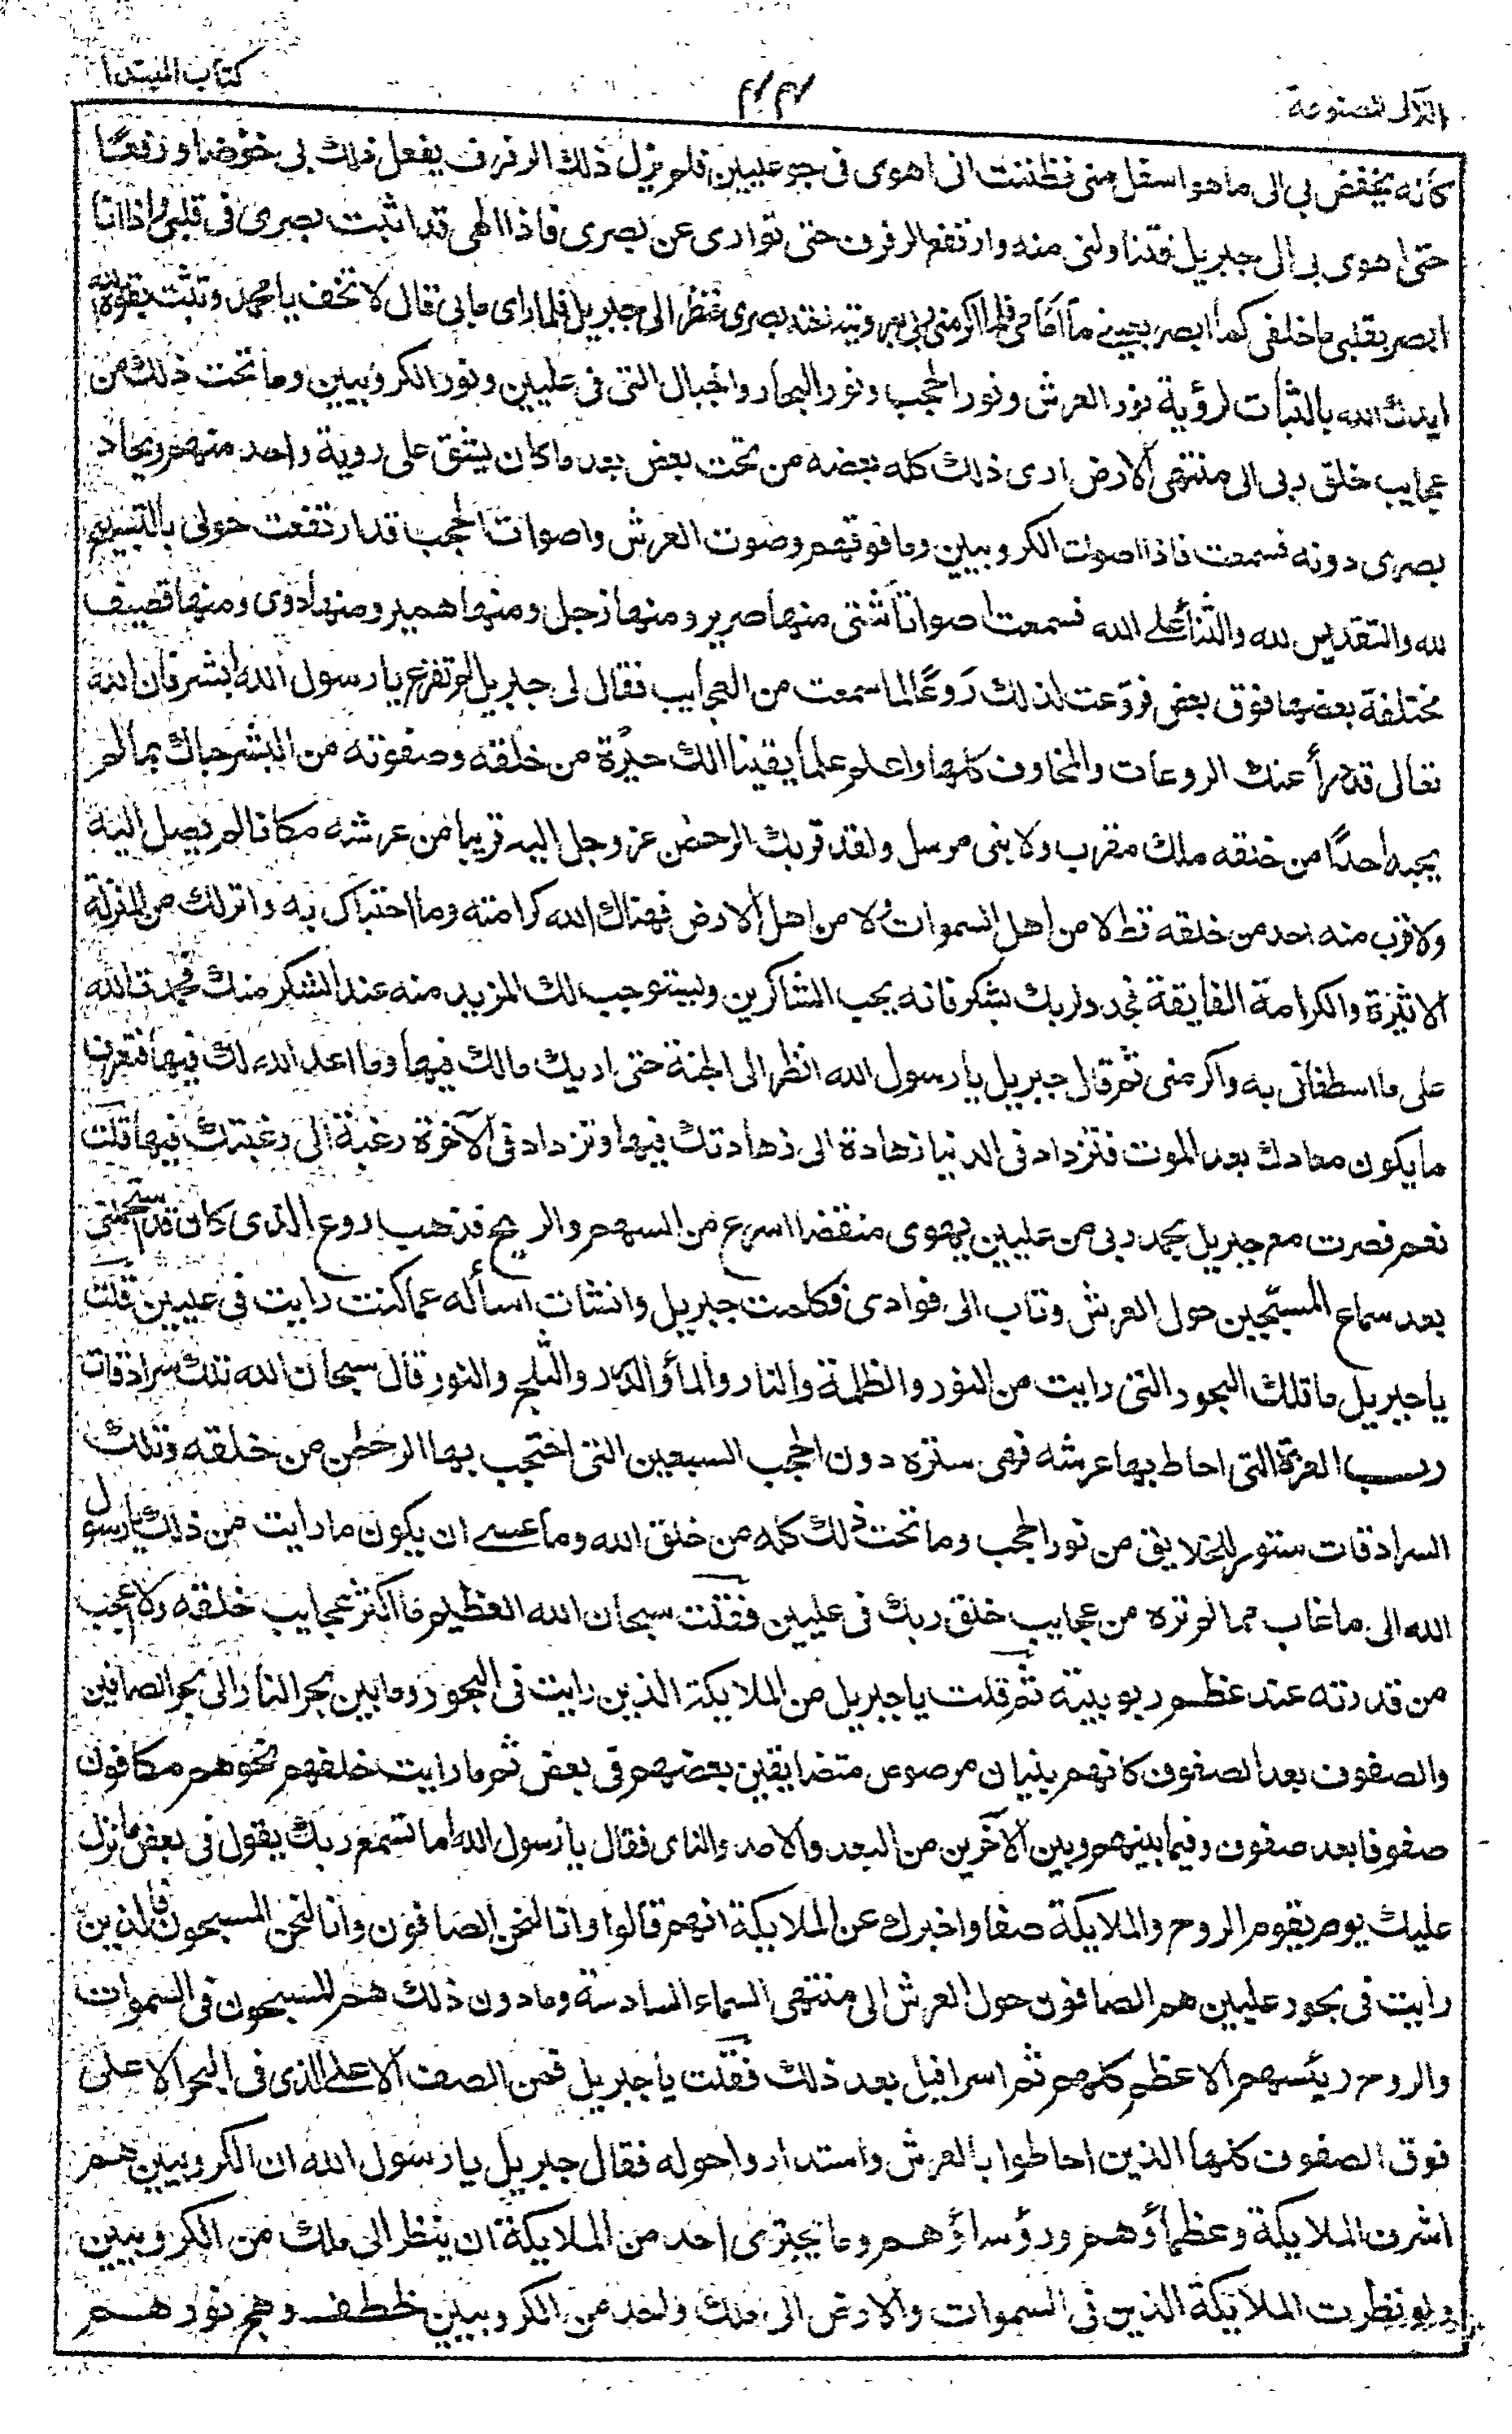 اللآلى المصنوعة
كتاب المبتدا
كأنه يخفض بى الى ما هو اسفل منى فظننت انى اهوى فى جو عليين فلم يزل ذلك الرفرف يفعل ذلك بى خفضا ورفعًا
حتى اهوى بى الى جبريل فتناولنى منه وارتفع الرفرف حتى توارى عن بصرى فاذا الهى قد اثبت بصرى فى قلبى واذا انا
ابصر بقلبى ما خلفى كما ابصر بعينى ما أمامى فلما اكرمنى ربى برويته نخته بصرى فنظر الى جبريل فلما راى ما بى قال لا تخف يا محمد وتثبت بقوة الله
ايدك الله بالثبات لرؤية نور العرش ونور الحجب ونور البحار والجبال التى فى عليين ونور الكروبيين وما تحت ذلك من
عجايب خلق ربى الى منتهى الارض ارى ذلك كله بعضه من تحت بعض بعد ما كان يشق على روية واحد منهم ويحاد
بصرى دونه فسمعت فاذا اصوات الكروبيين وما فوقهم وصوت العرش واصوات الحجب قد ارتفعت حولى بالتسبيح
لله والتقديس لله والثناء على الله فسمعت اصواتا شتى منها صرير ومنها زجل ومنها همير ومنها دوى ومنها قصيف
مختلفة بعضها فوق بعض فروعت لذلك رَوعًا لما سمعت من العجايب فقال لى جبريل لم تفزع يا رسول الله ابشر فان الله
تعالى قد درأ عنك الروعات والمخاوف كلها واعلم علما يقينا انك خيرة من خلقه وصفوته من البشر حباك بما لم
يحبه احدًا من خلقه ملك مقرب ولا نبى مرسل ولقد قربك الرحمن عز وجل اليه قريبا من عرشه مكانا لم يصل اليه
ولا قرب منه احد من خلقه قط لا من اهل السموات ولا من اهل الارض فهناك الله كرامته وما احتباك به وانزلك من المنزلة
الاثيرة والكرامة الفايقة فجدد لربك بشكر فانه يحب الشاكرين وليستوجب لك المزيد منه عند الشكر منك فحمدت الله
على ما اصطفانى به واكرمنى ثم قال جبريل يا رسول الله انظر الى الجنة حتى اريك مالك فيها وما اعد الله لك فيها فتعرف
ما يكون معادك بعد الموت فتزداد فى الدنيا زهادة الى زهادتك فيها وتزداد فى الآخرة رغبة الى رغبتك فيها قلت
نعم فصرت مع جبريل بحمد ربى من عليين يهوى منقضا اسرع من السهم والريح فذهب روع الذى كان قد استحملنى
بعد سماع المسبحين حول العرش وثاب الى فوادى فكلمت جبريل وانشات اسأله عما كنت رايت فى عليين قلت
يا جبريل ما تلك البحور التى رايت من النور والظلمة والنار والماء والدر والثلج والنور قال سبحان الله تلك سرادقات
رب العزة التى احاط بها عرشه فهى ستره دون الحجب السبعين التى احتجب بها الرحمن من خلقه وتلك
السرادقات ستور للخلايق من نور الحجب وما تحت ذلك كله من خلق الله وما عسے ان يكون ما رايت من ذلك يا رسول
الله الى ما غاب مما لم تره من عجايب خلق ربك فى عليين فقلت سبحان الله العظيم ما اكثر عجايب خلقه ولا اعجب
من قدرته عند عظم ربوبيته ثم قلت يا جبريل من الملايكة الذين رايت فى البحور وما بين بحر النار الى بحر الصافين
والصفوف بعد الصفوف كانهم بنيان مرصوص متضايقين بعضهم فى بعض ثم ما رايت خلفهم نحوهم مكافون
صفوفا بعد صفوف وفيما بينهم وبين الآخرين من البعد والامد والناى فقال يا رسول الله اما تسمع ربك يقول فى بعض ما نزل
عليك يوم يقوم الروح والملايكة صفا واخبرك عن الملايكة انهم قالوا وانا لنحن الصافون وانا لنحن المسبحون فالذين
رايت فى بحور عليين هم الصافون حول العرش الى منتهى السماء السادسة وما دون ذلك هم المسبحون فى السموات
والروح رئيسهم الاعظم كلهم ثم اسرافيل بعد ذلك فقلت يا جبريل فمن الصف الاعلى الذى فى البحر الاعلى
فوق الصفوف كلها الذين احاطوا بالعرش واستداروا حوله فقال جبريل يا رسول الله ان الكروبيين هم
اشرف الملايكة وعظماؤهم ورؤساؤهم وما يجترى احد من الملايكة ان ينظر الى ملك من الكروبيين
ولو نظرت الملايكة الذين فى السموات والارض الى ملك واحد من الكروبيين خطف وهج نورهم